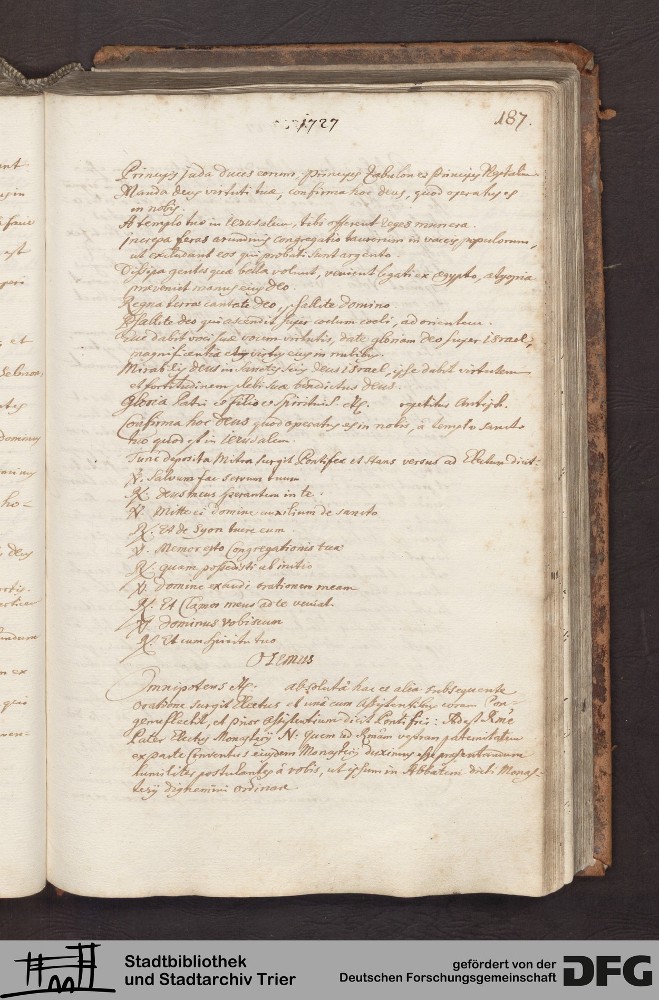 1727
187.
Princeps Juda duces eorum, principes Zabulon et principes Neptalim
Manda deus virtuti tuæ, confirma hoc deus, quod operatus es
in nobis.
A templo tuo in Jerusalem, tibi offerent reges munera.
increpa feras arundinis congregatio taurorum in vaccis populorum,
ut excludant eos qui probati sunt argento.
Dissipa gentes quæ bella volunt, venient legati ex Ægypto, æthyopia
præveniet manus ejus deo.
Regna terræ cantate deo, psallite domino
Psallite deo qui ascendit super coelum coeli, ad orientem.
Ecce dabit voci suæ vocem virtutis, date gloriam deo super israel,
magnificentia ejus virtus ejus in nubibus.
Mirabilis deus in sanctis suis deus israel, ipse dabit virtutem
et fortitudinem plebi suæ benedictus deus.
Gloria Patri et filio et Spiritui. &c. repetitur Antiph.
Confirma hoc Deus quod operatus es in nobis, à templo sancto
tuo quod est in Jerusalem.
Tunc deposita Mitra surgit Pontifex et stans versus ad Electum dicit:
V. Salvum fac servum tuum
R. deus meus sperantem in te.
V. Mitte ei domine auxilium de sancto
R. Et de Syon tuere eum
V. Memor esto Congregationis tuæ
R. quam possedisti ab initio
V. domine exaudi orationem meam
R. Et Clamor meus ad te veniat.
V. dominus vobiscum
R. Et cum spiritu tuo
Oremus
Omnipotens &c. absolutâ hac et alia subsequente
oratione surgit Electus et unà cum assistentibus coram Pon-
genuflectit, et prior assistentium dicit Pontifici: Adest Rme
Pater Electus Monasterii N: quem ad Rmam vestram paternitatem
ex parte Conventus eiusdem Monasterii duximus repræsentandum
humiliter postulantes à vobis, ut ipsum in Abbatem dicti Monas-
terij dignemini ordinare
Stadtbibliothek
und Stadtarchiv Trier
gefördert von der
Deutschen Forschungsgemeinschaft
DFG